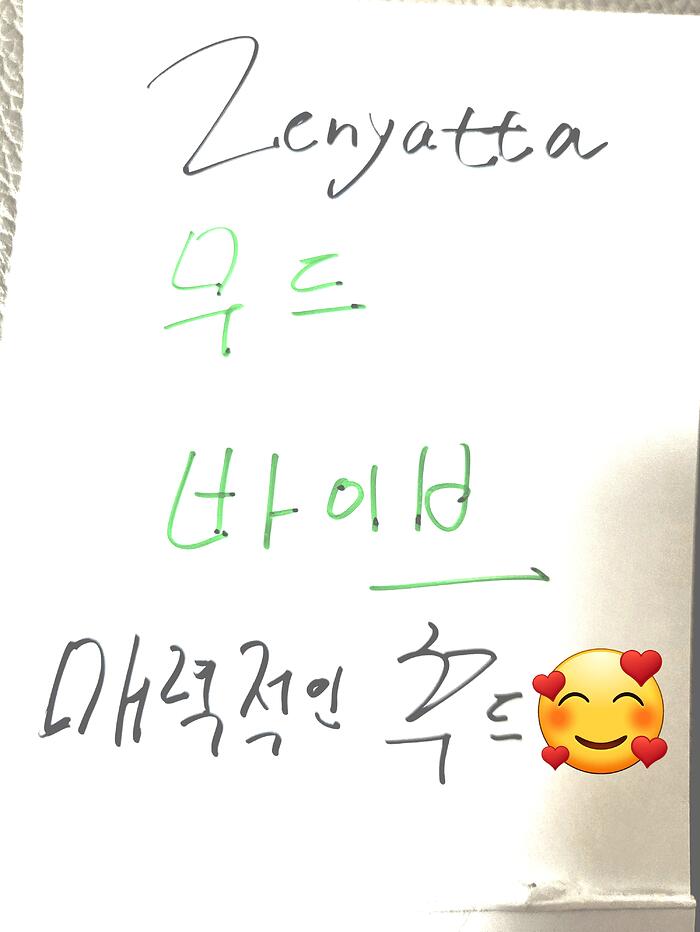 Zenyatta
무드
바이브
매력적인 후드